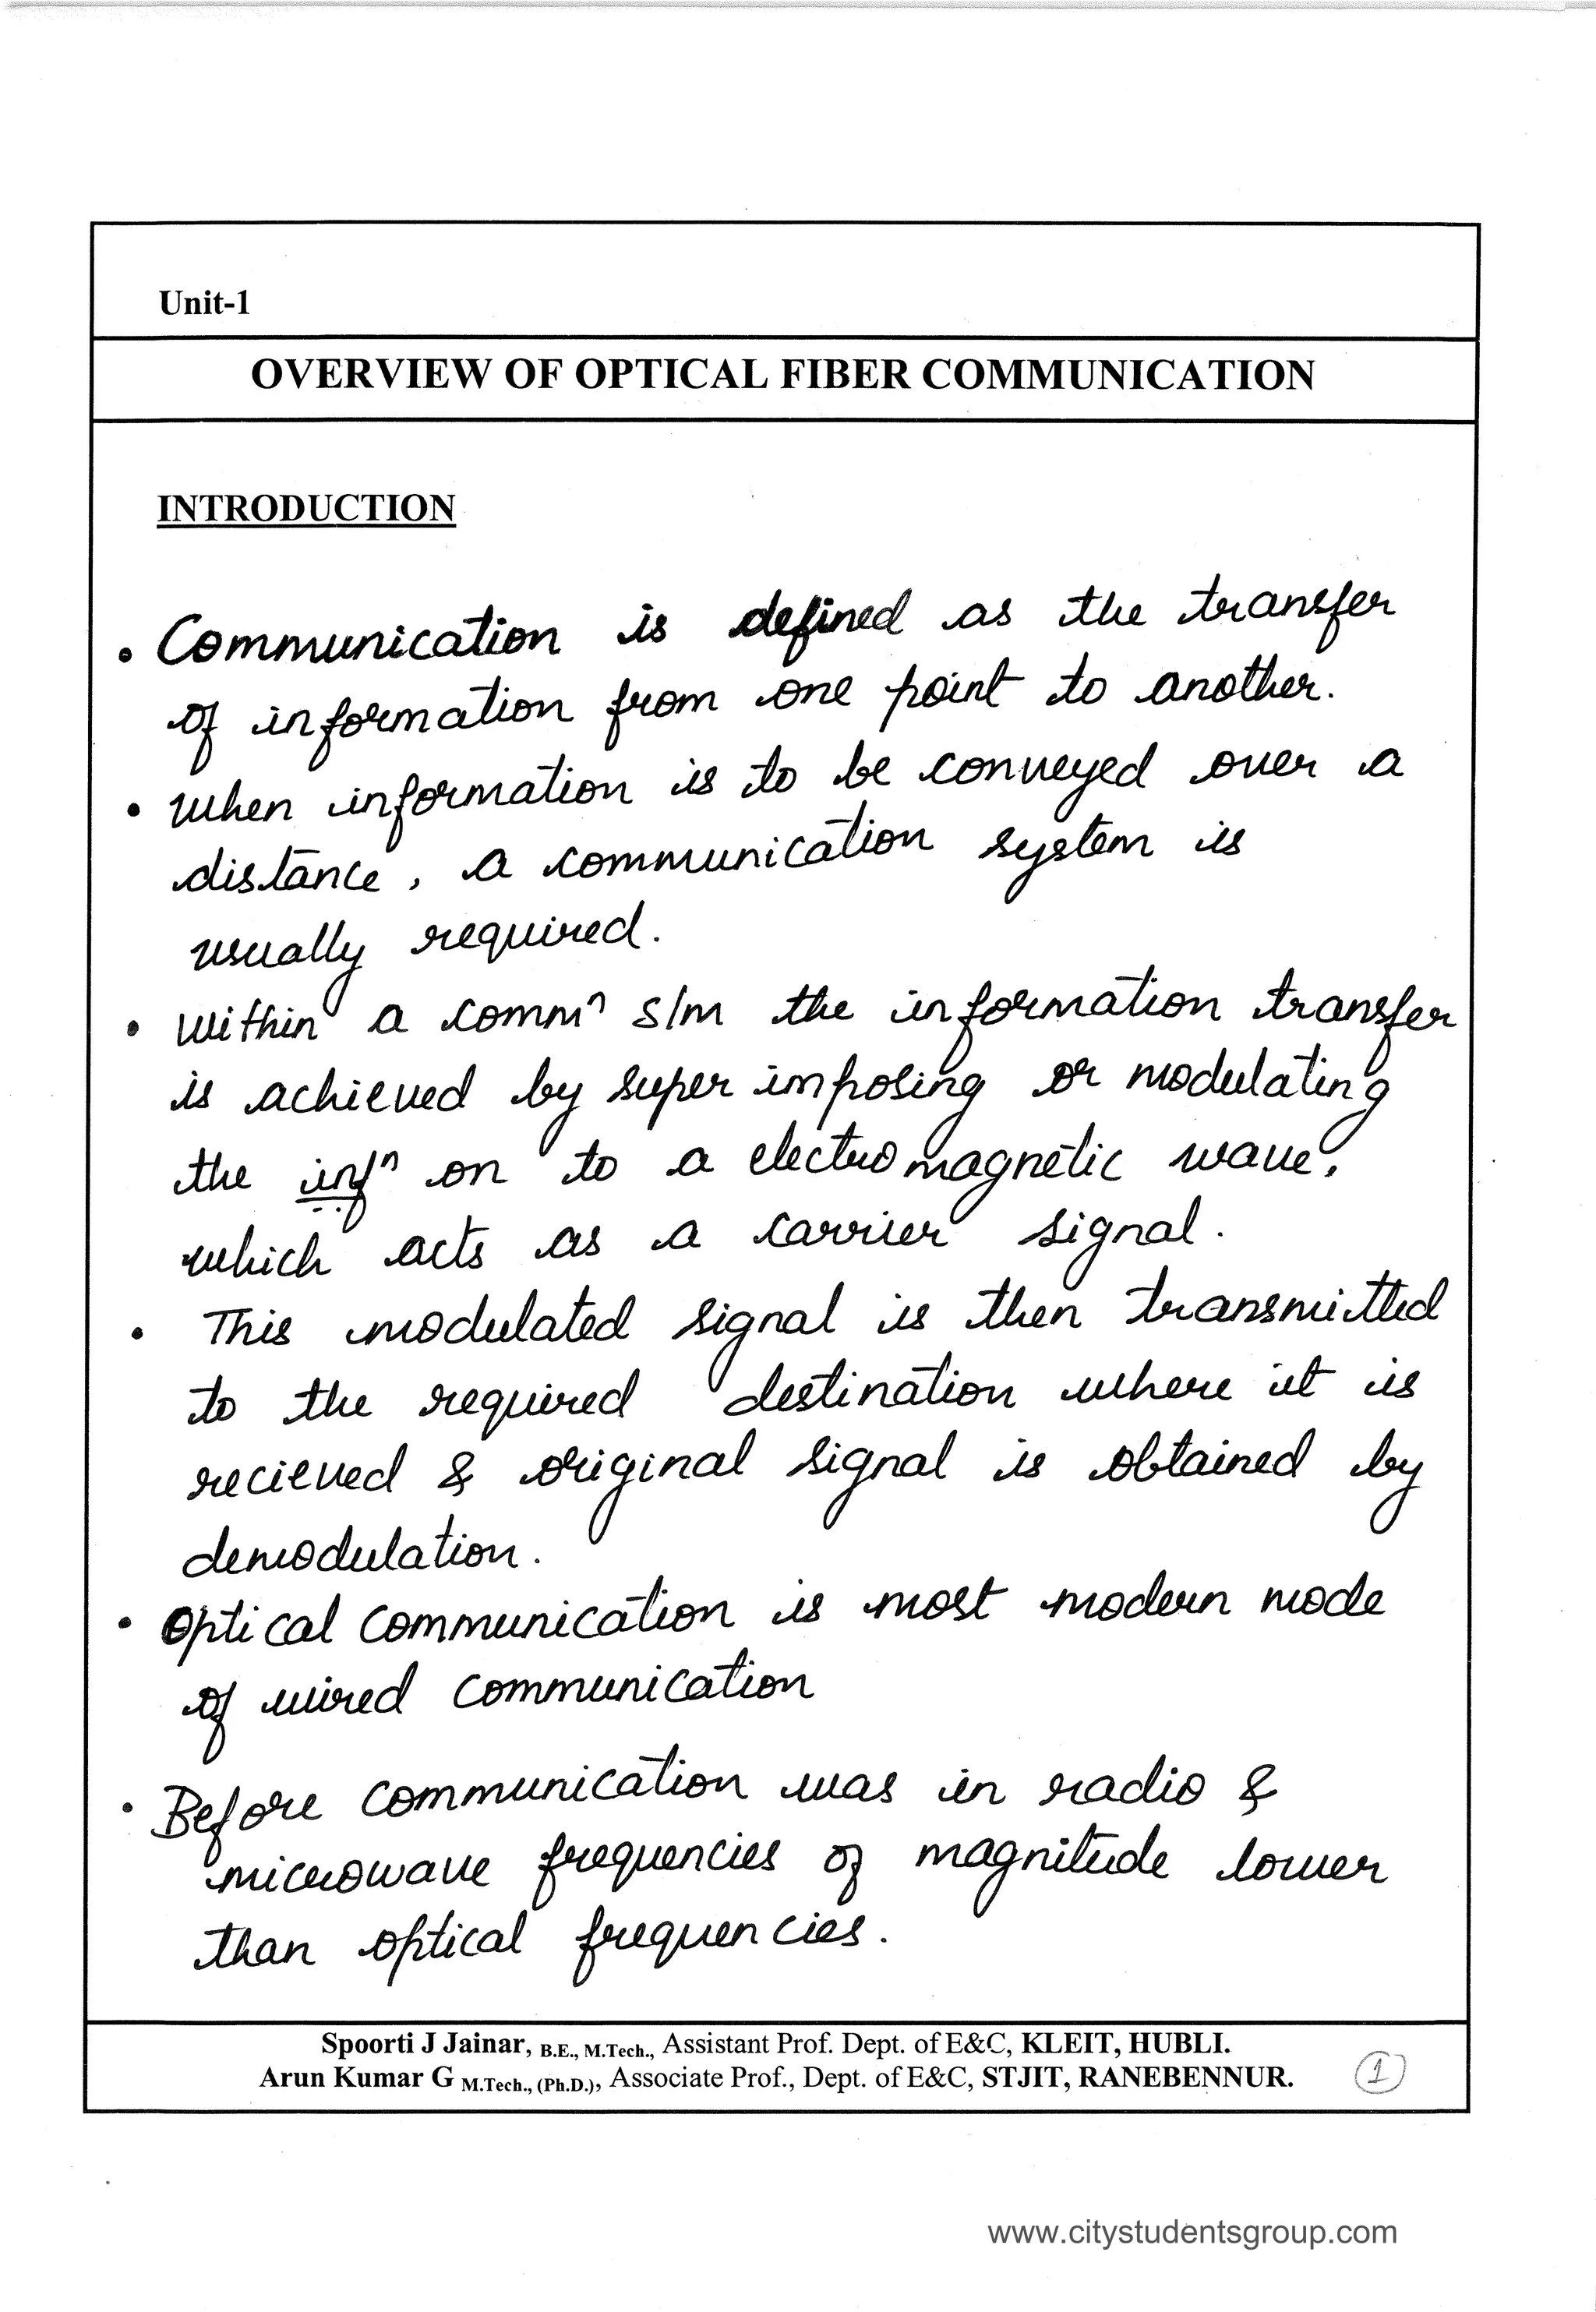 Unit-1
OVERVIEW OF OPTICAL FIBER COMMUNICATION
INTRODUCTION
• Communication is defined as the transfer
of information from one point to another.
• when information is to be conveyed over a
distance, a communication system is
usually required.
• within a commⁿ s/m the information transfer
is achieved by super imposing or modulating
the infⁿ on to a electromagnetic wave,
which acts as a carrier signal.
• This modulated signal is then transmitted
to the required destination where it is
recieved & original signal is obtained by
demodulation.
• Optical communication is most modern mode
of wired communication
• Before communication was in radio &
microwave frequencies of magnitude lower
than optical frequencies.
Spoorti J Jainar, B.E., M.Tech., Assistant Prof. Dept. of E&C, KLEIT, HUBLI.
Arun Kumar G M.Tech., (Ph.D.), Associate Prof., Dept. of E&C, STJIT, RANEBENNUR.
1
www.citystudentsgroup.com